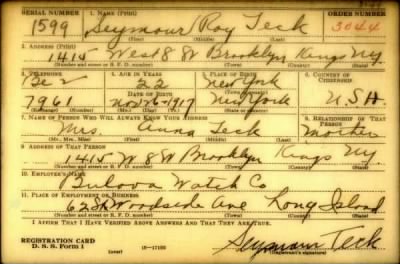 SERIAL NUMBER 1. NAME (Print) ORDER NUMBER
1599 Seymour Roy Teck 3044
(First) (Middle) (Last)
2. ADDRESS (Print)
1415 West 8 St Brooklyn Kings NY.
(Number and street or R. F. D. number) (Town) (County) (State)
3. TELEPHONE 4. AGE IN YEARS 5. PLACE OF BIRTH 6. COUNTRY OF CITIZENSHIP
Be 2 22 New York
DATE OF BIRTH
7961 Nov 26-1917 New York U.S.A.
(Exchange) (Number) (Mo.) (Day) (Yr.) (State or country)
7. NAME OF PERSON WHO WILL ALWAYS KNOW YOUR ADDRESS 8. RELATIONSHIP OF THAT PERSON
Mrs. Anna Teck Mother
(Mr., Mrs., Miss) (First) (Middle) (Last)
9. ADDRESS OF THAT PERSON
1415 W 8 St Brooklyn Kings NY.
(Number and street or R. F. D. number) (Town) (County) (State)
10. EMPLOYER'S NAME
Bulova Watch Co
11. PLACE OF EMPLOYMENT OR BUSINESS
62 St Woodside Ave Long Island
(Number and street or R. F. D. number) (Town) (County) (State)
I AFFIRM THAT I HAVE VERIFIED ABOVE ANSWERS AND THAT THEY ARE TRUE.
REGISTRATION CARD
D. S. S. Form 1 (over) 16-17105 Seymour Teck
(Registrant's signature)